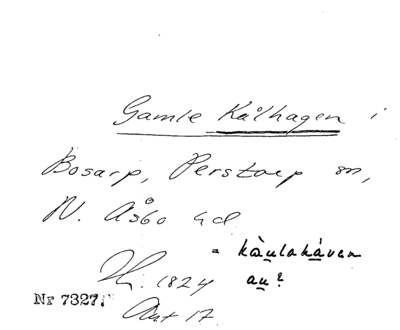 Gamle Kålhagen i
Bosarp, Perstorp sn,
N. Åsbo hd
= kàulahávan
H. 1824 au?
Nr 7327.
Akt 17